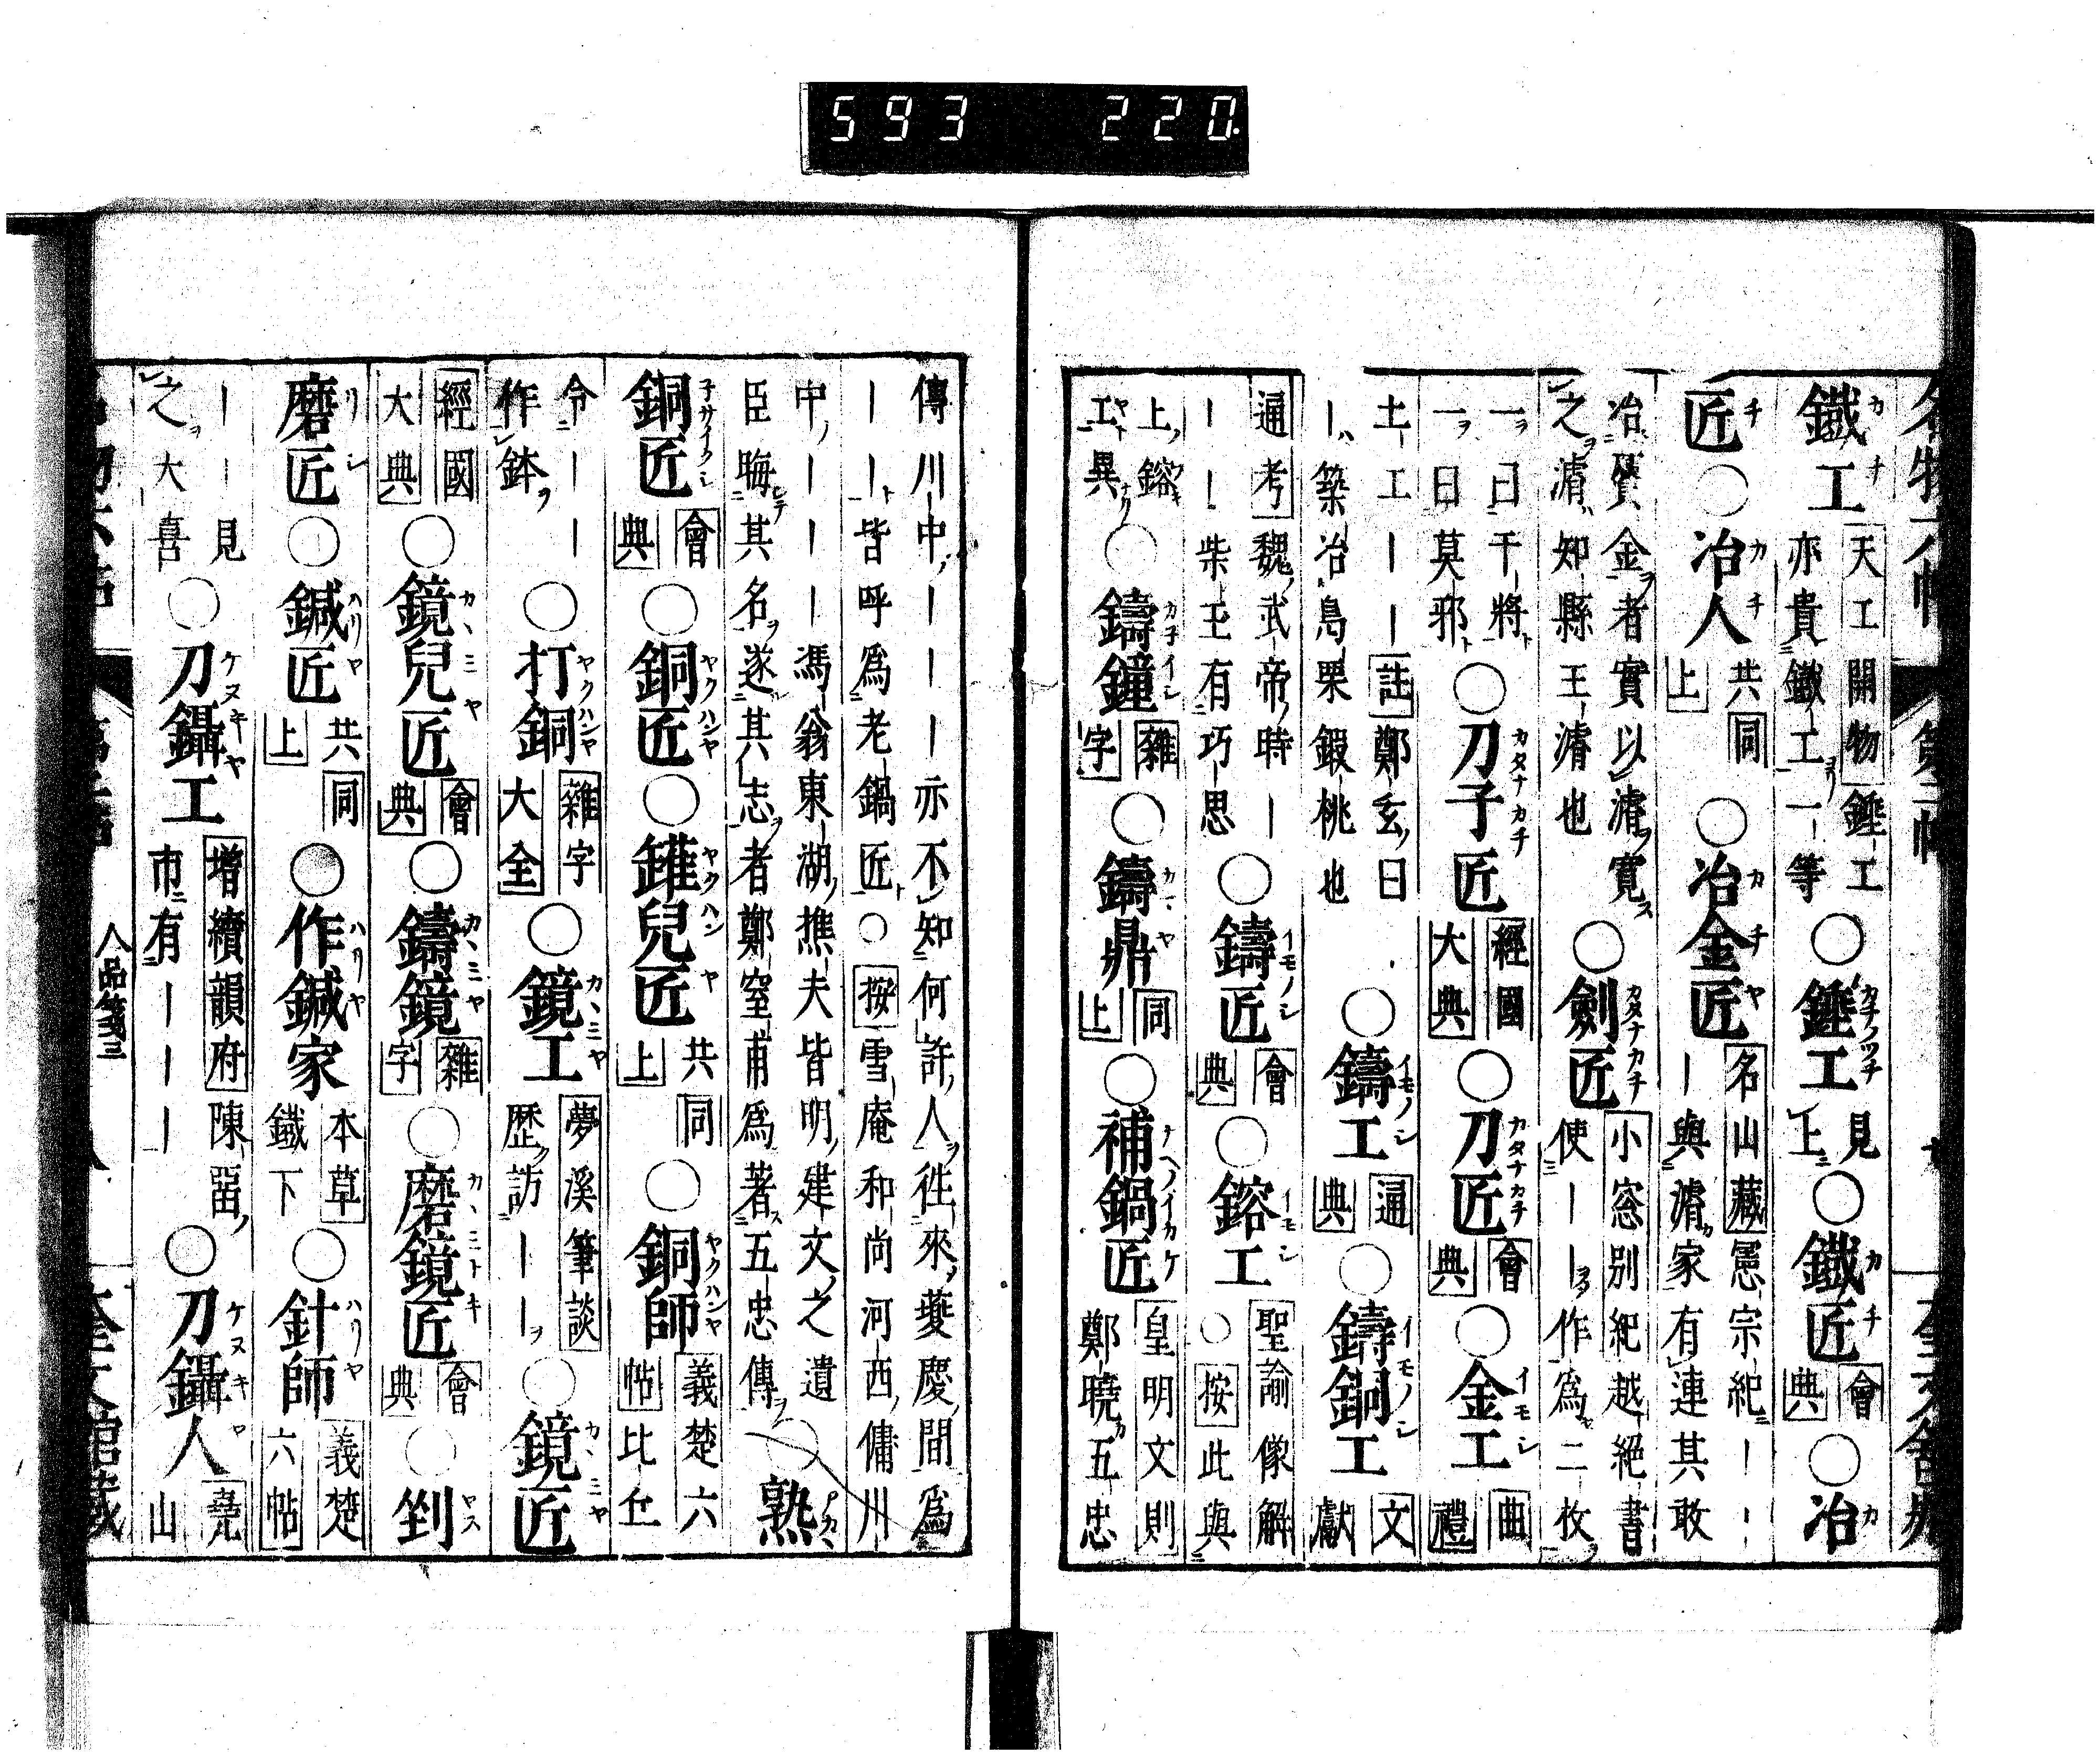 593 220
鐵工 天工開物 錘工亦貴鐵工一等 ○錘工 見上 ○鐵匠 會典 ○冶
匠 ○冶人 共同上 ○冶金匠 名山藏 憲宗紀ーー ー與濬家有連其敢
冶 金者實以濬寛之濬知縣王濬也 ○劍匠 小窓別紀 越絕書 使ーー作為二枚
一曰干將一曰莫邪 ○刀子匠 經國大典 ○刀匠 會典 ○金工 曲禮
土工ーー 註 鄭玄曰ー築冶鳧栗鍜桃也 ○鑄工 通典 ○鑄銅工 文獻
通考 魏武帝時ーーー柴玉有巧思 ○鑄匠 會典 ○鎔工 聖諭像解 ○按此與
上鎔工異 ○鑄鐘 雜字 ○鑄鼎 同上 ○補鍋匠 皇明文則 鄭曉五忠
傳川中ーーー亦不知何許人往來夔慶間為
ーー皆呼爲老鍋匠 ○按雪庵和尚河西傭川
中ーーー馮翁東湖樵夫皆明建文之遺
臣晦其名遂其志者鄭窒甫爲著五忠傳 ○熟
銅匠 會典 ○銅匠 ○鑵兒匠 共同上 ○銅師 義楚六帖 比丘
令ーー作鉢 ○打銅 雜字大全 ○鏡工 夢溪筆談 歷訪ーー ○鏡匠
經國大典 ○鏡兒匠 會典 ○鑄鏡 雜字 ○磨鏡匠 會典 ○剉
磨匠 ○鍼匠 共同上 ○作鍼家 本草 鐵下 ○針師 義楚六帖
ーー見之大喜 ○刀鑷工 增續韻府 陳留市有ーーー ○刀鑷人 堯山
人品箋三